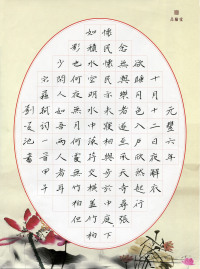 元豐六年
十月十二日夜解衣
欲睡月色入戶欣然起行
念無與樂者遂至承天寺尋張
懷民懷民亦未寢相與步於中庭下
如積水空明水中藻荇交橫蓋竹柏
影也何夜無月何處無竹柏但
少閑人如吾兩人者耳
詞一首甲午
劉池書